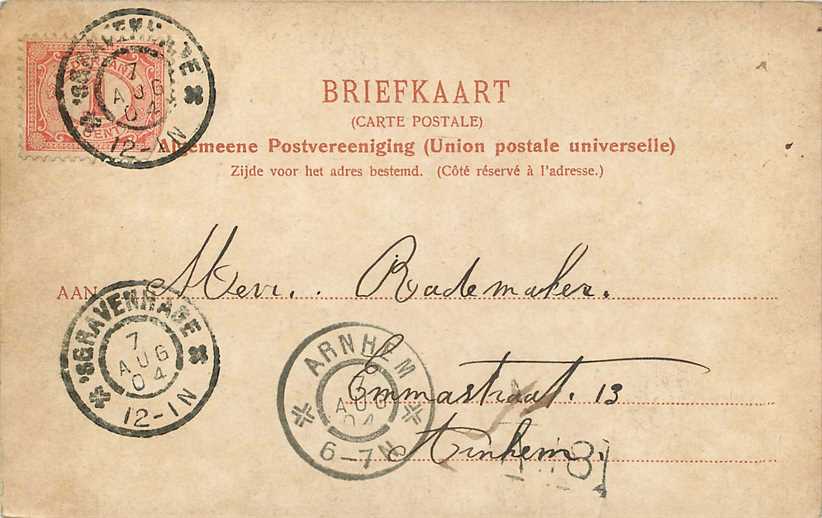 'SGRAVENHAGE
7
AUG
04
12-1N
CENT
BRIEFKAART
(CARTE POSTALE)
Algemeene Postvereeniging (Union postale universelle)
Zijde voor het adres bestemd. (Côté réservé à l'adresse.)
AAN Mevr. Rademaker.
'SGRAVENHAGE
7
AUG
04
12-1N
ARNHEM
7
AUG
04
6-7N
Emmastraat. 13
Arnhem.